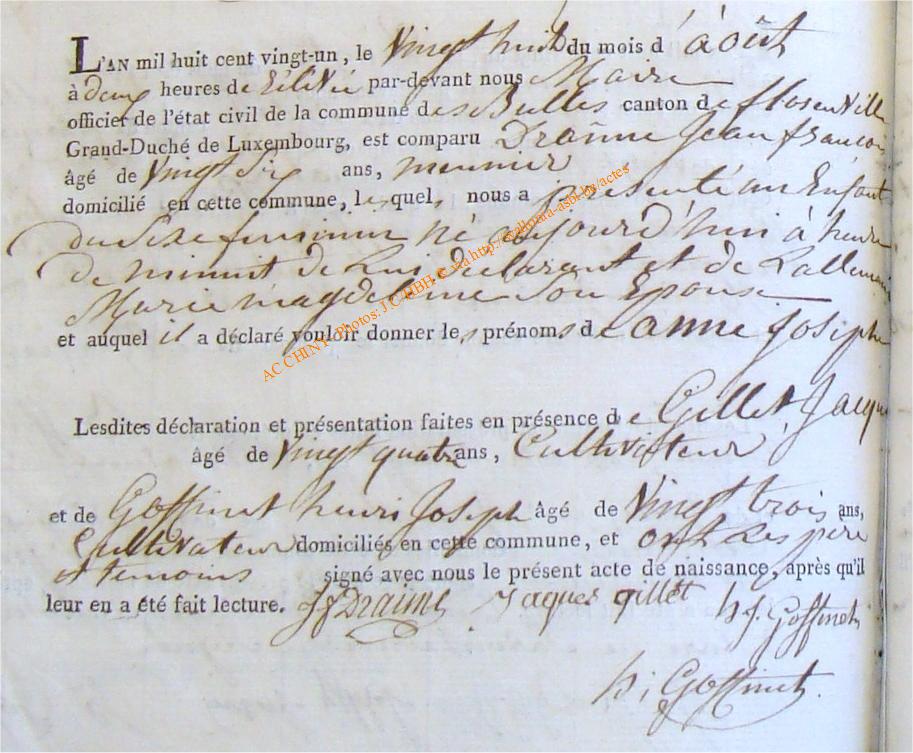 L'AN mil huit cent vingt-un, le Vingt huit du mois d'août
à deux heures de Rélevée par-devant nous Maire
officier de l'état civil de la commune des Bulles canton de florenville
Grand-Duché de Luxembourg, est comparu Draime Jean françois
âgé de Vingt Six ans, meunier
domicilié en cette commune, lesquels nous a présenté un Enfant
du Sexe feminin né aujourd'hui à heure
de minuit de Lui declarant et de Lallemand
Marie magdeleine Son Epouse
et auquel il a déclaré vouloir donner les prénoms de anne joseph
Lesdites déclaration et présentation faites en présence de Gillet, Jacques
âgé de Vingt quatre ans, Cultivateur
et de Goffinet henri Joseph âgé de Vingt trois ans,
Cultivateur domiciliés en cette commune, et ont Les père
et temoins signé avec nous le présent acte de naissance, après qu'il
leur en a été fait lecture. JfDraime Jaques gillet h j. Goffinet
h j Goffinet.
AC CHINY - Photos: J.C/HBH © via http://gallorama-asbl.be/actes